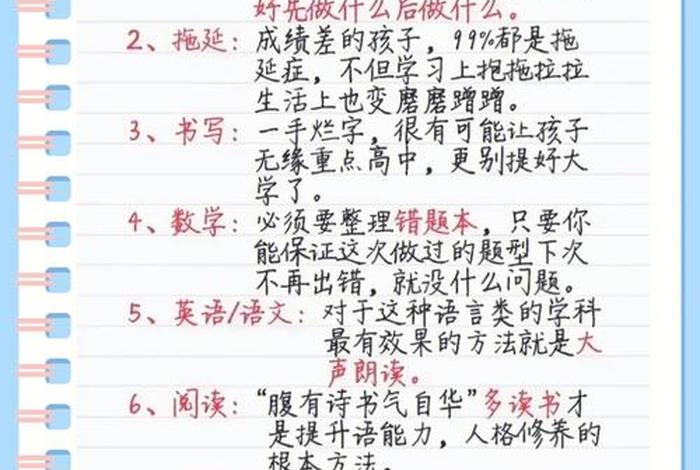 好先做什么后做什么。
2、拖延：成绩差的孩子，99%都是拖
延症，不但学习上拖拖拉拉
生活上也变磨磨蹭蹭。
3、书写：一手烂字，很有可能让孩子
无缘重点高中，更别提好大
学了。
4、数学：必须要整理错题本，只要你
能保证这次做过的题型下次
不再出错，就没什么问题。
5、英语/语文：对于这种语言类的学科
最有效果的方法就是大
声朗读。
6、阅读：“腹有诗书气自华”多读书才
是提升语能力，人格修养的
根本方法。